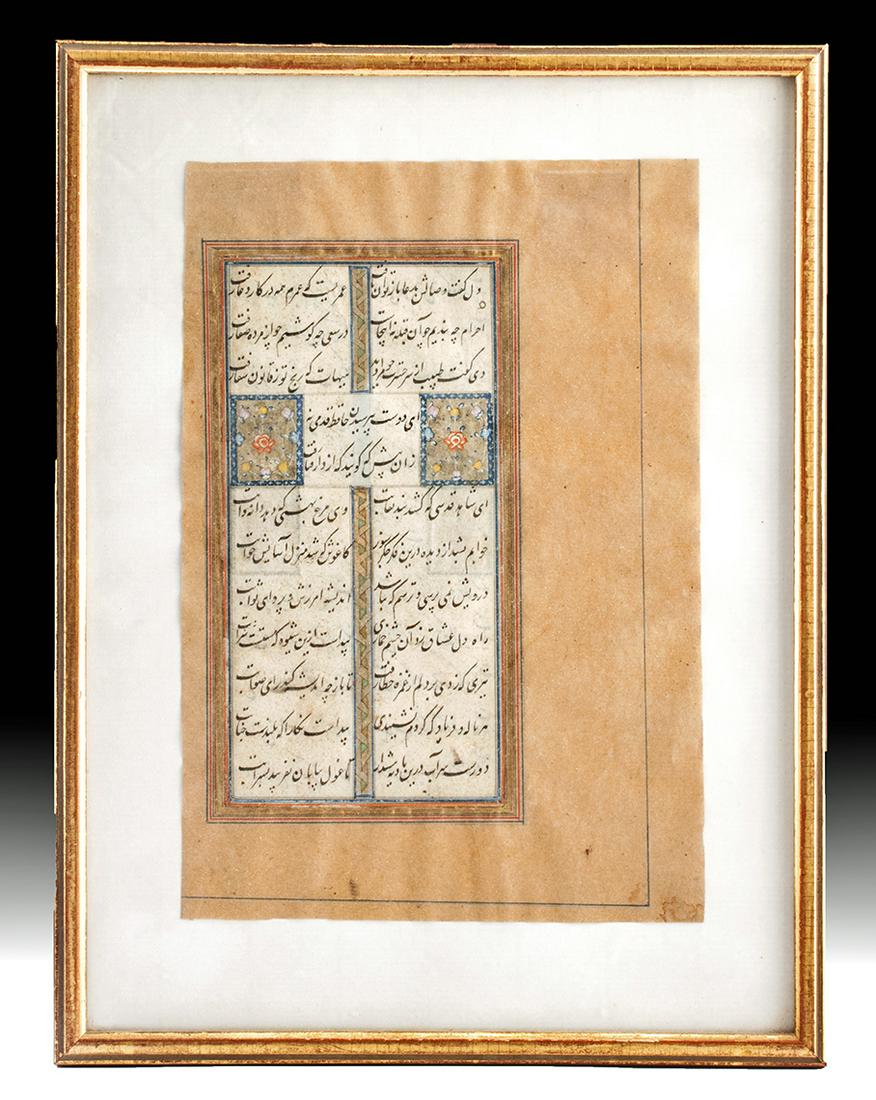 دل گفت وصالش بدعا باز توان یافت عمریست که عمرم همه در کار دعا رفت
احرام چه بندیم چو آن قبله نه اینجاست در سعی چه کوشیم چو از مروه صفا رفت
دی گفت طبیب از سر حسرت چو مرا دید هیهات که رنج تو ز قانون شفا رفت
ای دوست بپرسیدن حافظ قدمی نه
زان پیش که گویند که از دار فنا رفت
ای شاهد قدسی که کشد بند نقابت وی مرغ بهشتی که دهد دانه و آبت
خوابم بشد از دیده درین فکر جگر سوز کاغوش که شد منزل آسایش و خوابت
درویش نمی پرسی و ترسم که نباشد اندیشه آمرزش و پروای ثوابت
راه دل عشاق زد آن چشم خماری پیداست ازین شیوه که مستست شرابت
تیری که زدی بر دلم از غمزه خطا رفت تا باز چه اندیشه کند رای صوابت
هر ناله و فریاد که کردم نشنیدی پیداست نگارا که بلندست جنابت
دورست سر آب درین بادیه هش دار تا غول بیابان نفریبد بسرابت